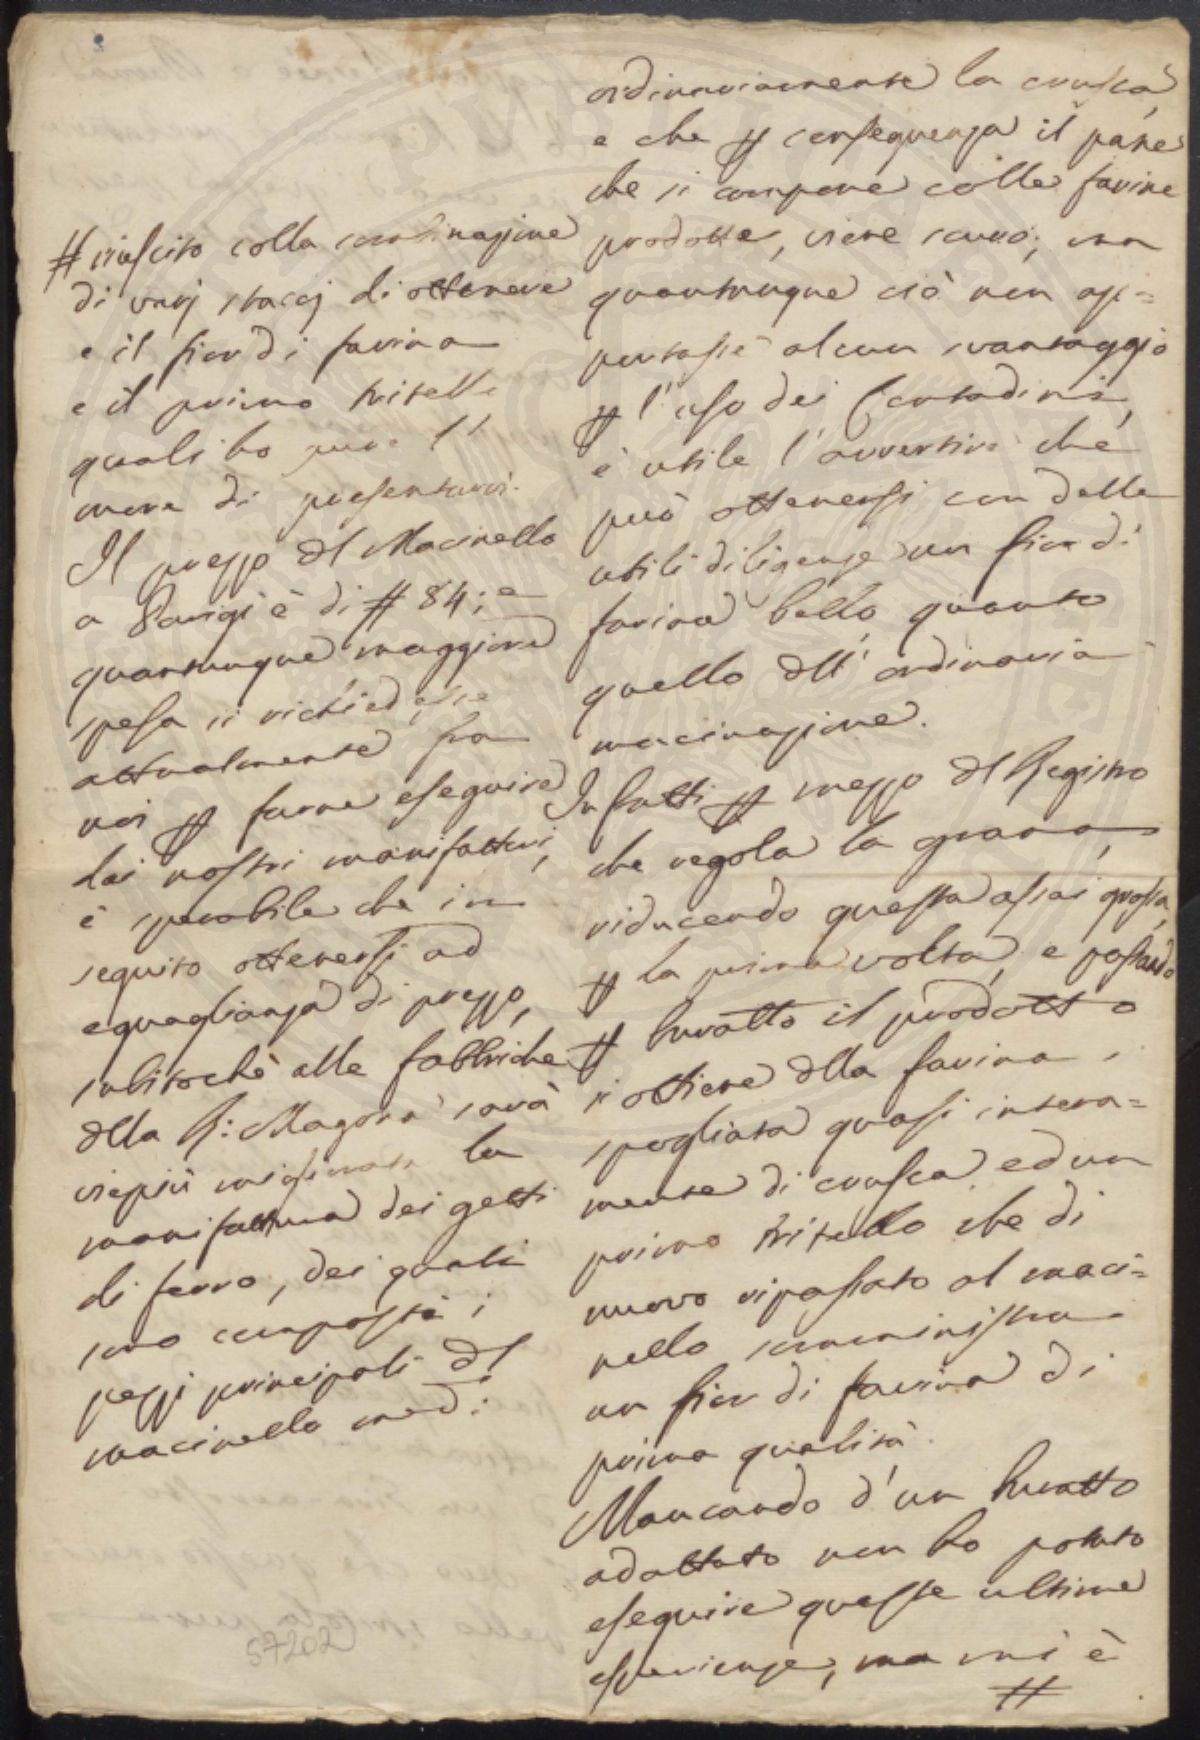 ordinariamente la crusca,
e che p conseguenza il pane
che si compone colle farine
prodotte, viene scuro; ma
quantunque ciò non ap=
portasse alcun svantaggio
p l'uso dei Contadini,
è utile l'avvertire che
può ottenersi con delle
utili diligenze un fior di
farina bello quanto
quello dll' ordinaria
macinazione.
Infatti p mezzo dl Registro
che regola la grana,
riducendo questa assai grossa,
p la prima volta, e passando
p buratto il prodotto
si ottiene dlla farina
spogliata quasi intera=
mente di crusca ed un
primo tritello che di
nuovo ripassato al maci=
nello somministra
un fior di farina di
prima qualità.
Mancando d'un buratto
adattato non ho potuto
eseguire queste ultime
esperienze, ma mi è
#
# riuscito colla
di varj stacci di ottenere
e il fior di farina
e il primo tritello
quali ho pure l'
onore di presentarvi.
Il prezzo dl Macinello
a Parigi è di # 84; e
quantunque maggiore
spesa si richiedesse
attualmente fra
noi p farne eseguire
dai nostri manifattori,
è sperabile che in
seguito ottenersi ad
eguaglianza di prezzo,
subitochè alle fabbriche
dlla R: Magona sarà
viepiù migliorata la
manifattura dei getti
di ferro, dei quali
sono composti i
pezzi principali dl
macinello medi:
57202